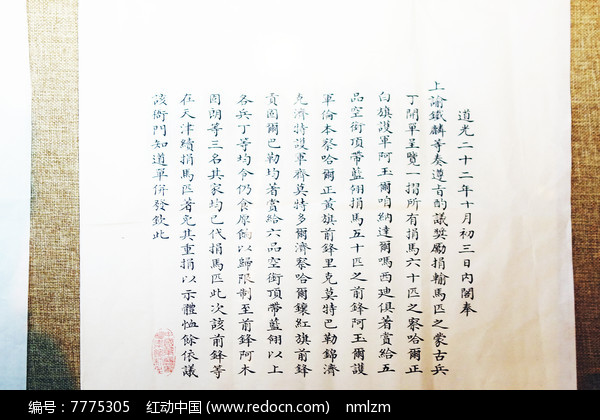 道光二十二年十月初三日内閣奉
上諭鐵麟等奏遵旨酌議獎勵捐輸馬匹之蒙古兵
丁開單呈覽一摺所有捐馬六十匹之察哈爾正
白旗護軍阿玉爾咱納達爾嗎西廸俱著賞給五
品空銜頂帶藍翎捐馬五十匹之前鋒阿玉爾護
軍倫本察哈爾正黃旗前鋒里克莫特巴勒錦濟
克濟特護軍齋莫特多爾濟察哈爾鑲紅旗前鋒
貢固爾巴勒均著賞給六品空銜頂帶藍翎以上
各兵丁等均令仍食原餉以歸限制至前鋒阿木
固朗等三名其家均已代捐馬匹此次該前鋒等
在天津續捐馬匹著免其重捐以示體恤餘依議
該衙門知道單併發欽此
编号：7775305 红动中国 (www.redocn.com) nmlzm